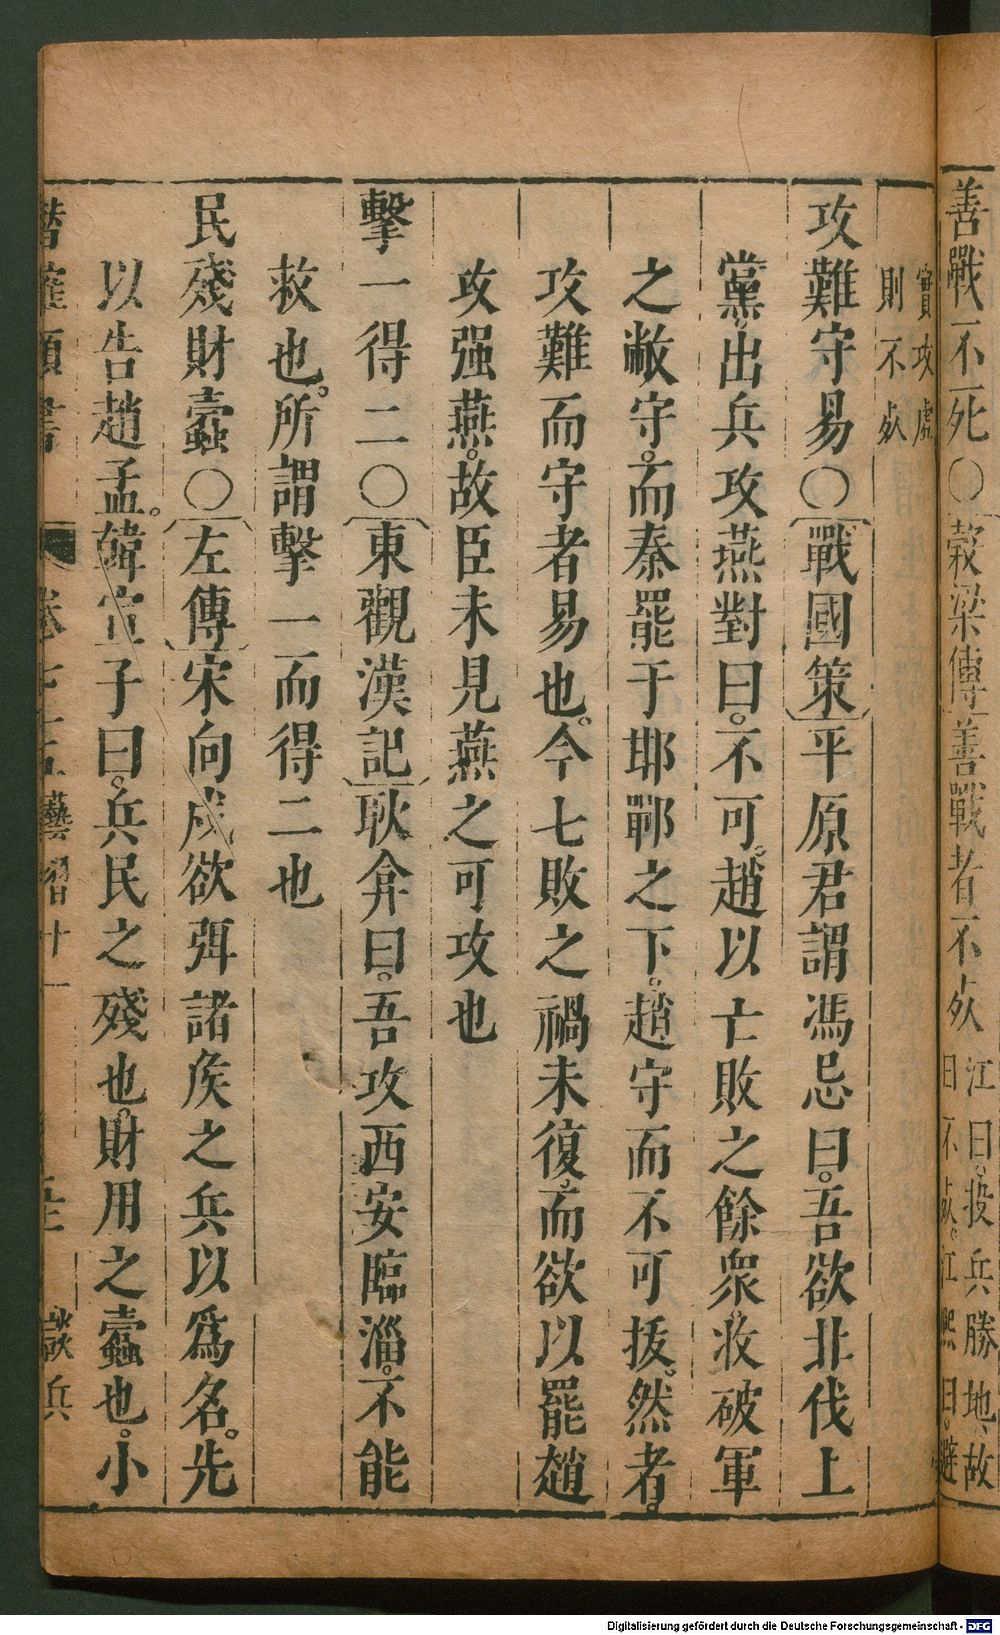 善戰不死〇穀梁傳善戰者不㱙
江曰投兵勝地故
曰不㱙江熙曰避
實攻處
則不㱙
攻難守易〇戰國策平原君謂馮忌曰吾欲北伐上
黨出兵攻燕對曰不可趙以亡敗之餘衆收破軍
之敝守而秦罷于耶鄲之下趙守而不可拔然者
攻難而守者易也今七敗之禍未復而欲以罷趙
攻强燕故臣未見燕之可攻也
擊一得二〇東觀漢記耿弇曰吾攻西安臨淄不能
救也所謂擊一而得二也
民殘財蠧〇左傳宋向戍欲弭諸矦之兵以爲名先
以告趙孟韓宣子曰兵民之殘也財用之蠧也小
卷 藝習十一 談兵
Digitalisierung gefördert durch die Deutsche Forschungsgemeinschaft - DFG